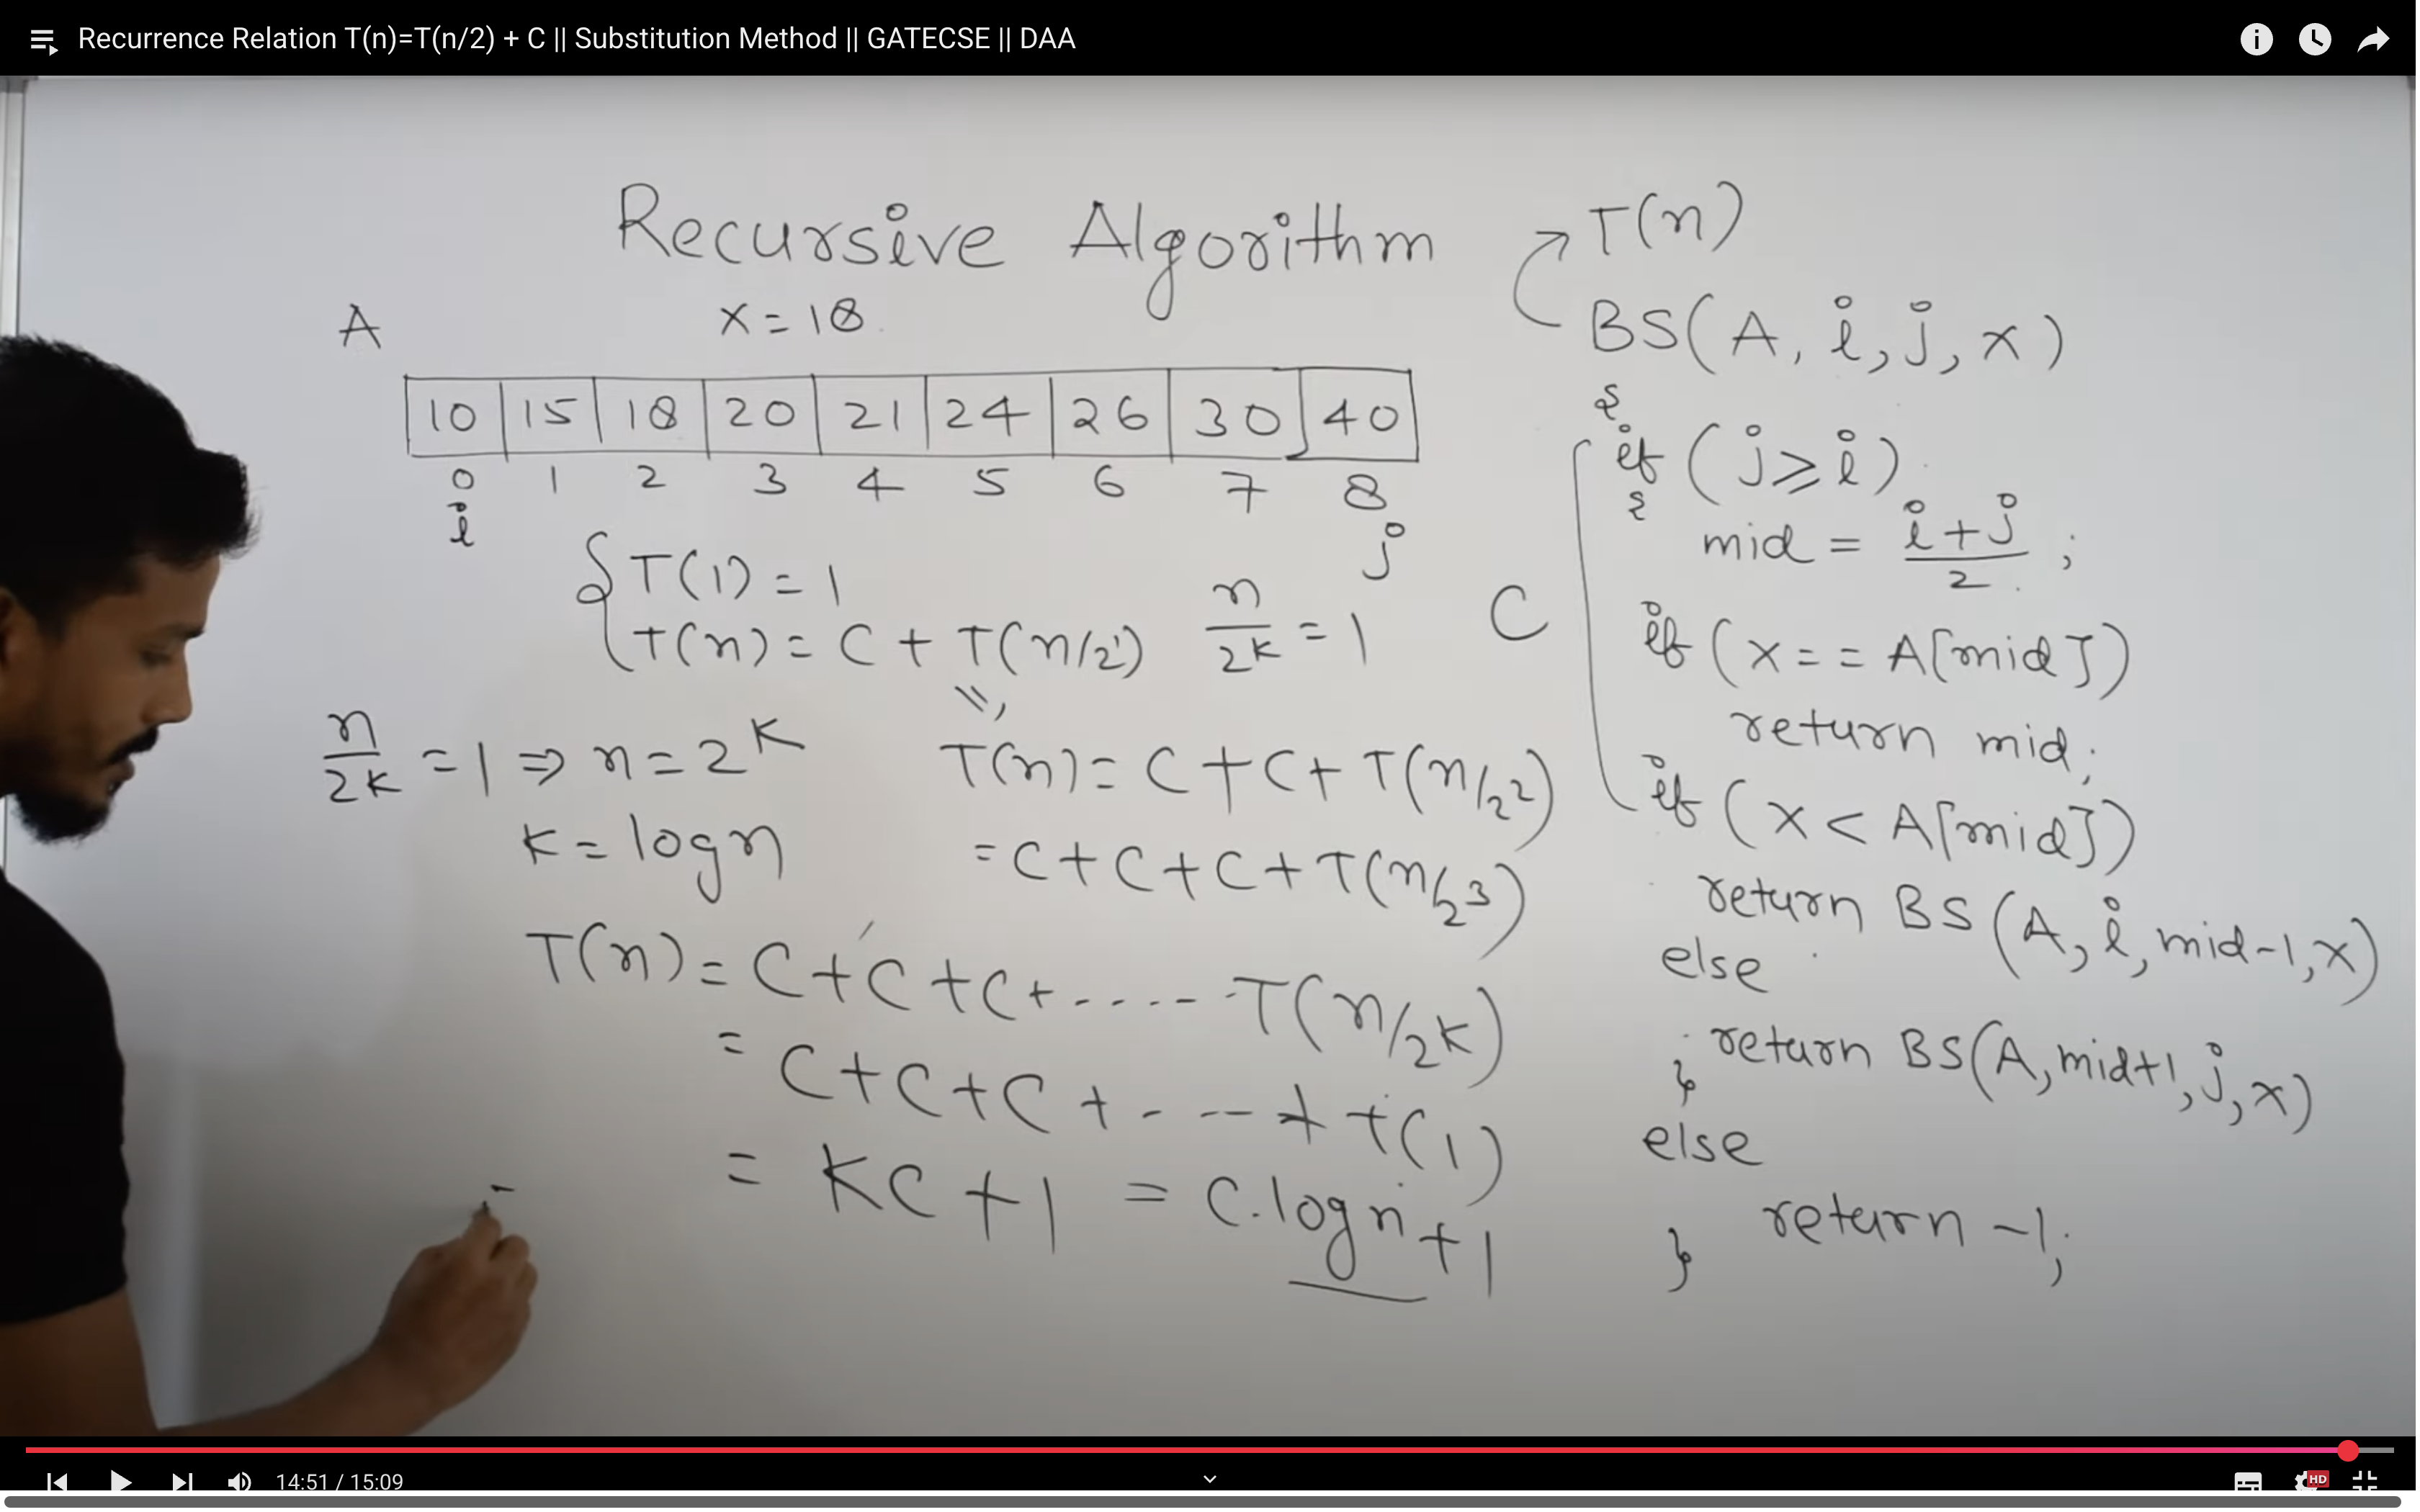 Recurrence Relation T(n)=T(n/2) + C || Substitution Method || GATECSE || DAA
Recursive Algorithm
A
x = 18
10 15 18 20 21 24 26 30 40
0 1 2 3 4 5 6 7 8
i
j
{ T(1) = 1
T(n) = C + T(n/2¹)
n/2^K = 1
n/2^K = 1 ⇒ n = 2^K
K = log n
T(n) = C + C + T(n/2²)
= C + C + C + T(n/2³)
T(n) = C + C + C + ..... T(n/2^K)
= C + C + C + - -- + T(1)
= KC + 1 = C.log n + 1
T(n)
BS(A, i, j, x)
{
C
if (j ≥ i)
{
mid = (i + j)/2 ;
if (x == A[mid])
return mid;
if (x < A[mid])
return BS(A, i, mid-1, x)
else
return BS(A, mid+1, j, x)
}
else
return -1;
}
14:51 / 15:09
HD